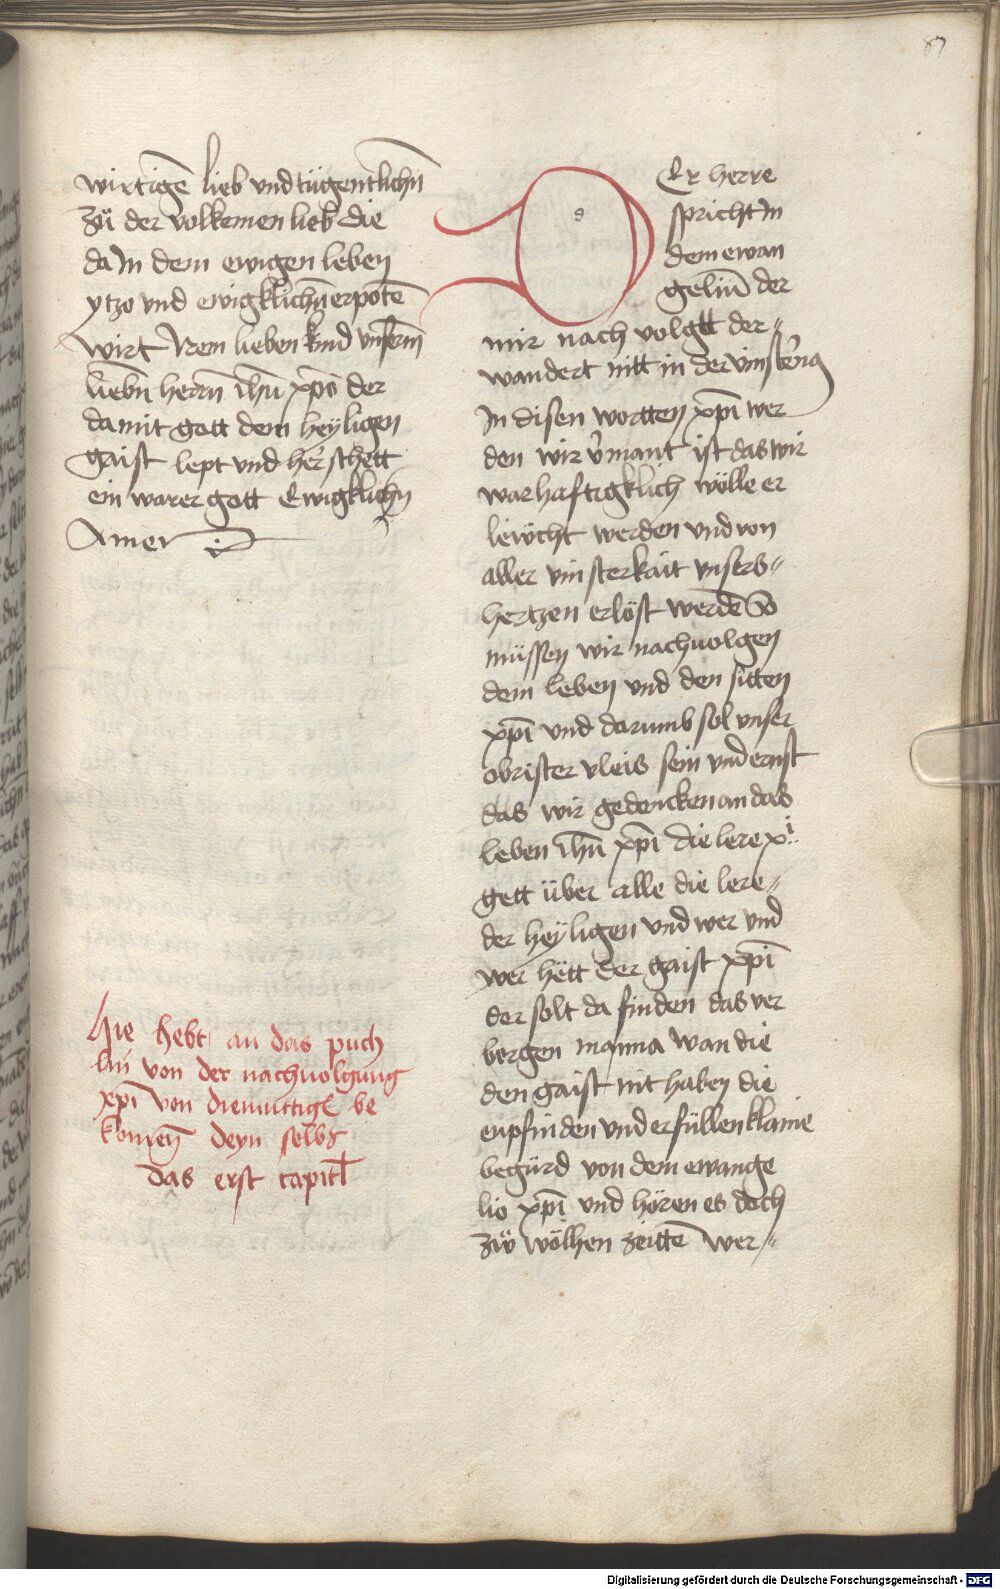 87
wirtigē lieb vnd tügentlichn̄
zü der volkomen lieb die
da In dem ewigen leben
ytzo vnd ewigklichn̄ erpotē
wirt Irem lieben kind vnserm̄
liebn̄ herrn̄ ih̄u xp̄o der
da mit gott dem heyligen
gaist lept vnd her̄schett
ein warer gott Ewigklichn̄
Amen
Hie hebt an das puch
lin̄ von der nachuolgung
xp̄i von diemuttigē be
komen̄ deyn selbs
das erst capitl
Er herre
spricht In
dem ewan
geliū der
mir nach volgtt der
wandert nitt in der vinster̄ng
In disen wortten xp̄i wer
den wir v̄mant ist das wir
warhaftigklich wölle er
lewcht werden vnd von
aller vinsterkait vnsers
hertzen erlöst werdē So
müssen wir nachuolgen
dem leben vnd den sitten
xp̄i vnd darumb sol vnser
obrister vleis sein vnd ernst
das wir gedencken an das
leben ih̄u xp̄i die lere xi
gett über alle die lere
der heyligen vnd wer vnd
wer hett der gaist xp̄i
der solt da finden das ver
borgen manna wan die
den gaist nit haben die
enpfinden vnd erfüllen klaine
begürd von dem ewange
lio xp̄i vnd hören es doch
zw wölhen zeittē wer
Digitalisierung gefördert durch die Deutsche Forschungsgemeinschaft - DFG